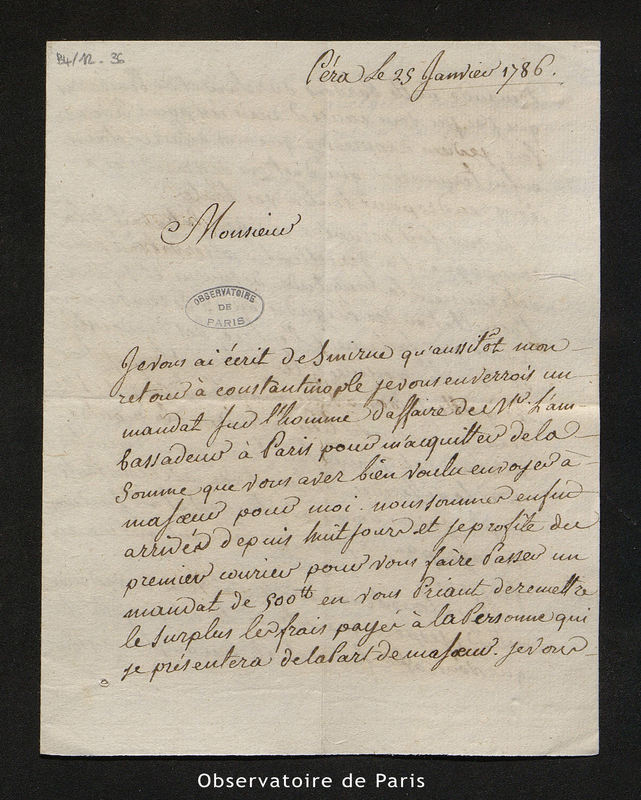 B4/12 - 36
Péra Le 25 Janvier 1786.
Monsieur
OBSERVATOIRE
DE
PARIS
Je vous ai écrit de Smirne qu'aussitôt mon
retour à constantinople je vous enverrois un
mandat sur l'homme d'affaire de Mr. L'am
bassadeur à Paris pour m'acquitter de la
Somme que vous avez bien voulu envoyer à
ma soeur pour moi. nous sommes enfin
arrivés depuis huit jours et je profite du
premier courier pour vous faire Passer un
mandat de 500tt en vous Priant de remettre
le surplus les frais payés à la Personne qui
se présentera de la Part de ma soeur. je vous
Observatoire de Paris